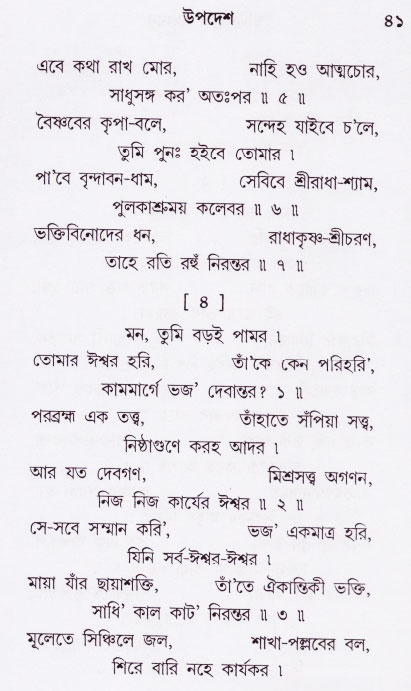 উপদেশ ৪১
এবে কথা রাখ মোর, নাহি হও আত্মচোর,
সাধুসঙ্গ কর' অতঃপর ॥ ৫ ॥
বৈষ্ণবের কৃপা-বলে, সন্দেহ যাইবে চ'লে,
তুমি পুনঃ হইবে তোমার ।
পা'বে বৃন্দাবন-ধাম, সেবিবে শ্রীরাধা-শ্যাম,
পুলকাশ্রুময় কলেবর ॥ ৬ ॥
ভক্তিবিনোদের ধন, রাধাকৃষ্ণ-শ্রীচরণ,
তাহে রতি রহুঁ নিরন্তর ॥ ৭ ॥
[ ৪ ]
মন, তুমি বড়ই পামর ।
তোমার ঈশ্বর হরি, তাঁ'কে কেন পরিহরি',
কামমার্গে ভজ' দেবান্তর? ১ ॥
পরব্রহ্ম এক তত্ত্ব, তাঁহাতে সঁপিয়া সত্ত্ব,
নিষ্ঠাগুণে করহ আদর ।
আর যত দেবগণ, মিশ্রসত্ত্ব অগণন,
নিজ নিজ কার্যের ঈশ্বর ॥ ২ ॥
সে-সবে সম্মান করি', ভজ' একমাত্র হরি,
যিনি সর্ব-ঈশ্বর-ঈশ্বর ।
মায়া যাঁর ছায়াশক্তি, তাঁ'তে ঐকান্তিকী ভক্তি,
সাধি' কাল কাট' নিরন্তর ॥ ৩ ॥
মূলেতে সিঞ্চিলে জল, শাখা-পল্লবের বল,
শিরে বারি নহে কার্যকর ।